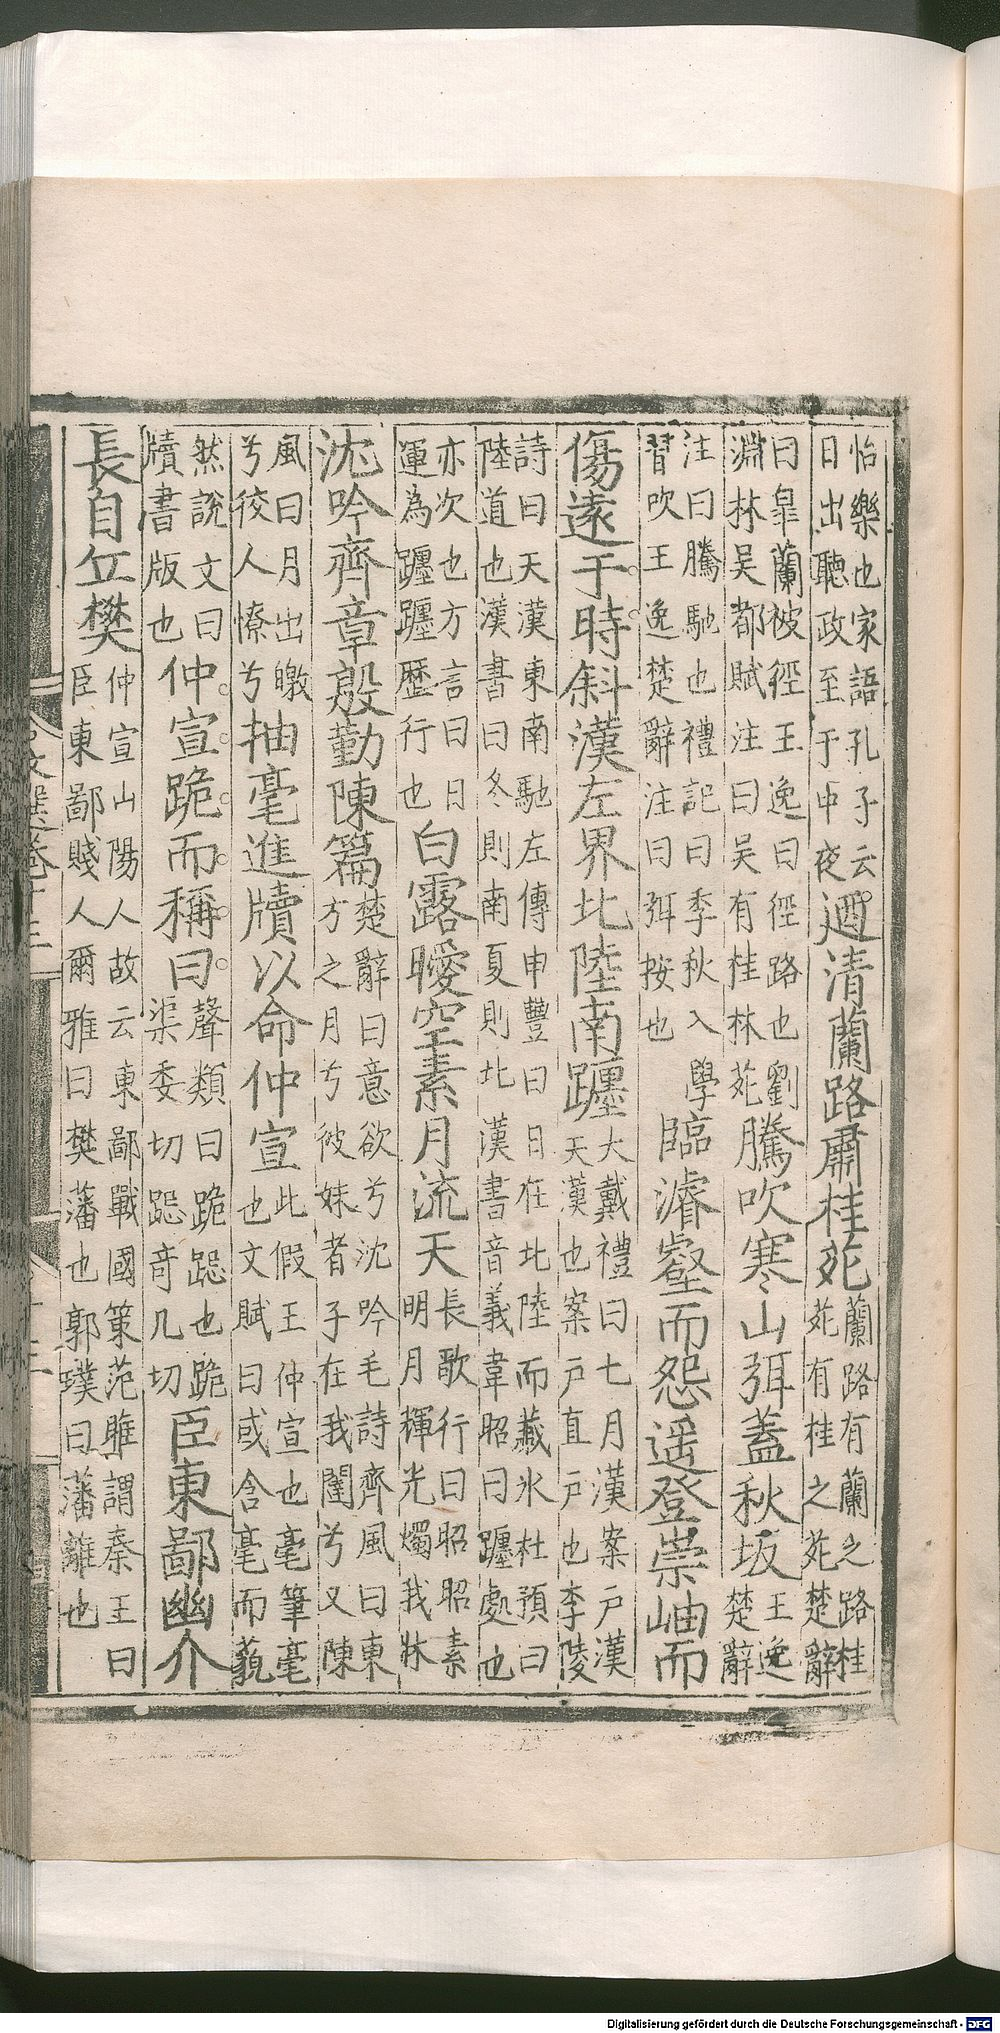 怡樂也家語孔子云
日出聽政至于中夜
迺清蘭路肅桂苑
蘭路有蘭之路桂
苑有桂之苑楚辭
曰皐蘭被徑王逸曰徑路也劉
淵林吳都賦注曰吳有桂林苑
騰吹寒山弭蓋秋坂
王逸
楚辭
注曰騰馳也禮記曰季秋入學
習吹王逸楚辭注曰弭按也
臨濬壑而怨遥登崇岫而
傷遠于時斜漢左界北陸南躔
大戴禮曰七月漢案戶漢
天漢也案戶直戶也李陵
詩曰天漢東南馳左傳申豐曰日在北陸而藏冰杜預曰
陸道也漢書曰冬則南夏則北漢書音義韋昭曰躔處也
亦次也方言曰日
運為躔躔歷行也
白露曖空素月流天
長歌行曰昭昭素
明月輝光燭我牀
沈吟齊章殷勤陳篇
楚辭曰意欲兮沈吟毛詩齊風曰東
方之月兮彼姝者子在我闥兮又陳
風曰月出皦
兮佼人憭兮
抽毫進牘以命仲宣
此假王仲宣也毫筆毫
也文賦曰或含毫而藐
然說文曰
牘書版也
仲宣跪而稱曰
聲類曰跪跽也跪
渠委切跽奇几切
臣東鄙幽介
長自丘樊
仲宣山陽人故云東鄙戰國策范雎謂秦王曰
臣東鄙賤人爾雅曰樊藩也郭璞曰藩籬也
文選卷十三
Digitalisierung gefördert durch die Deutsche Forschungsgemeinschaft - DFG